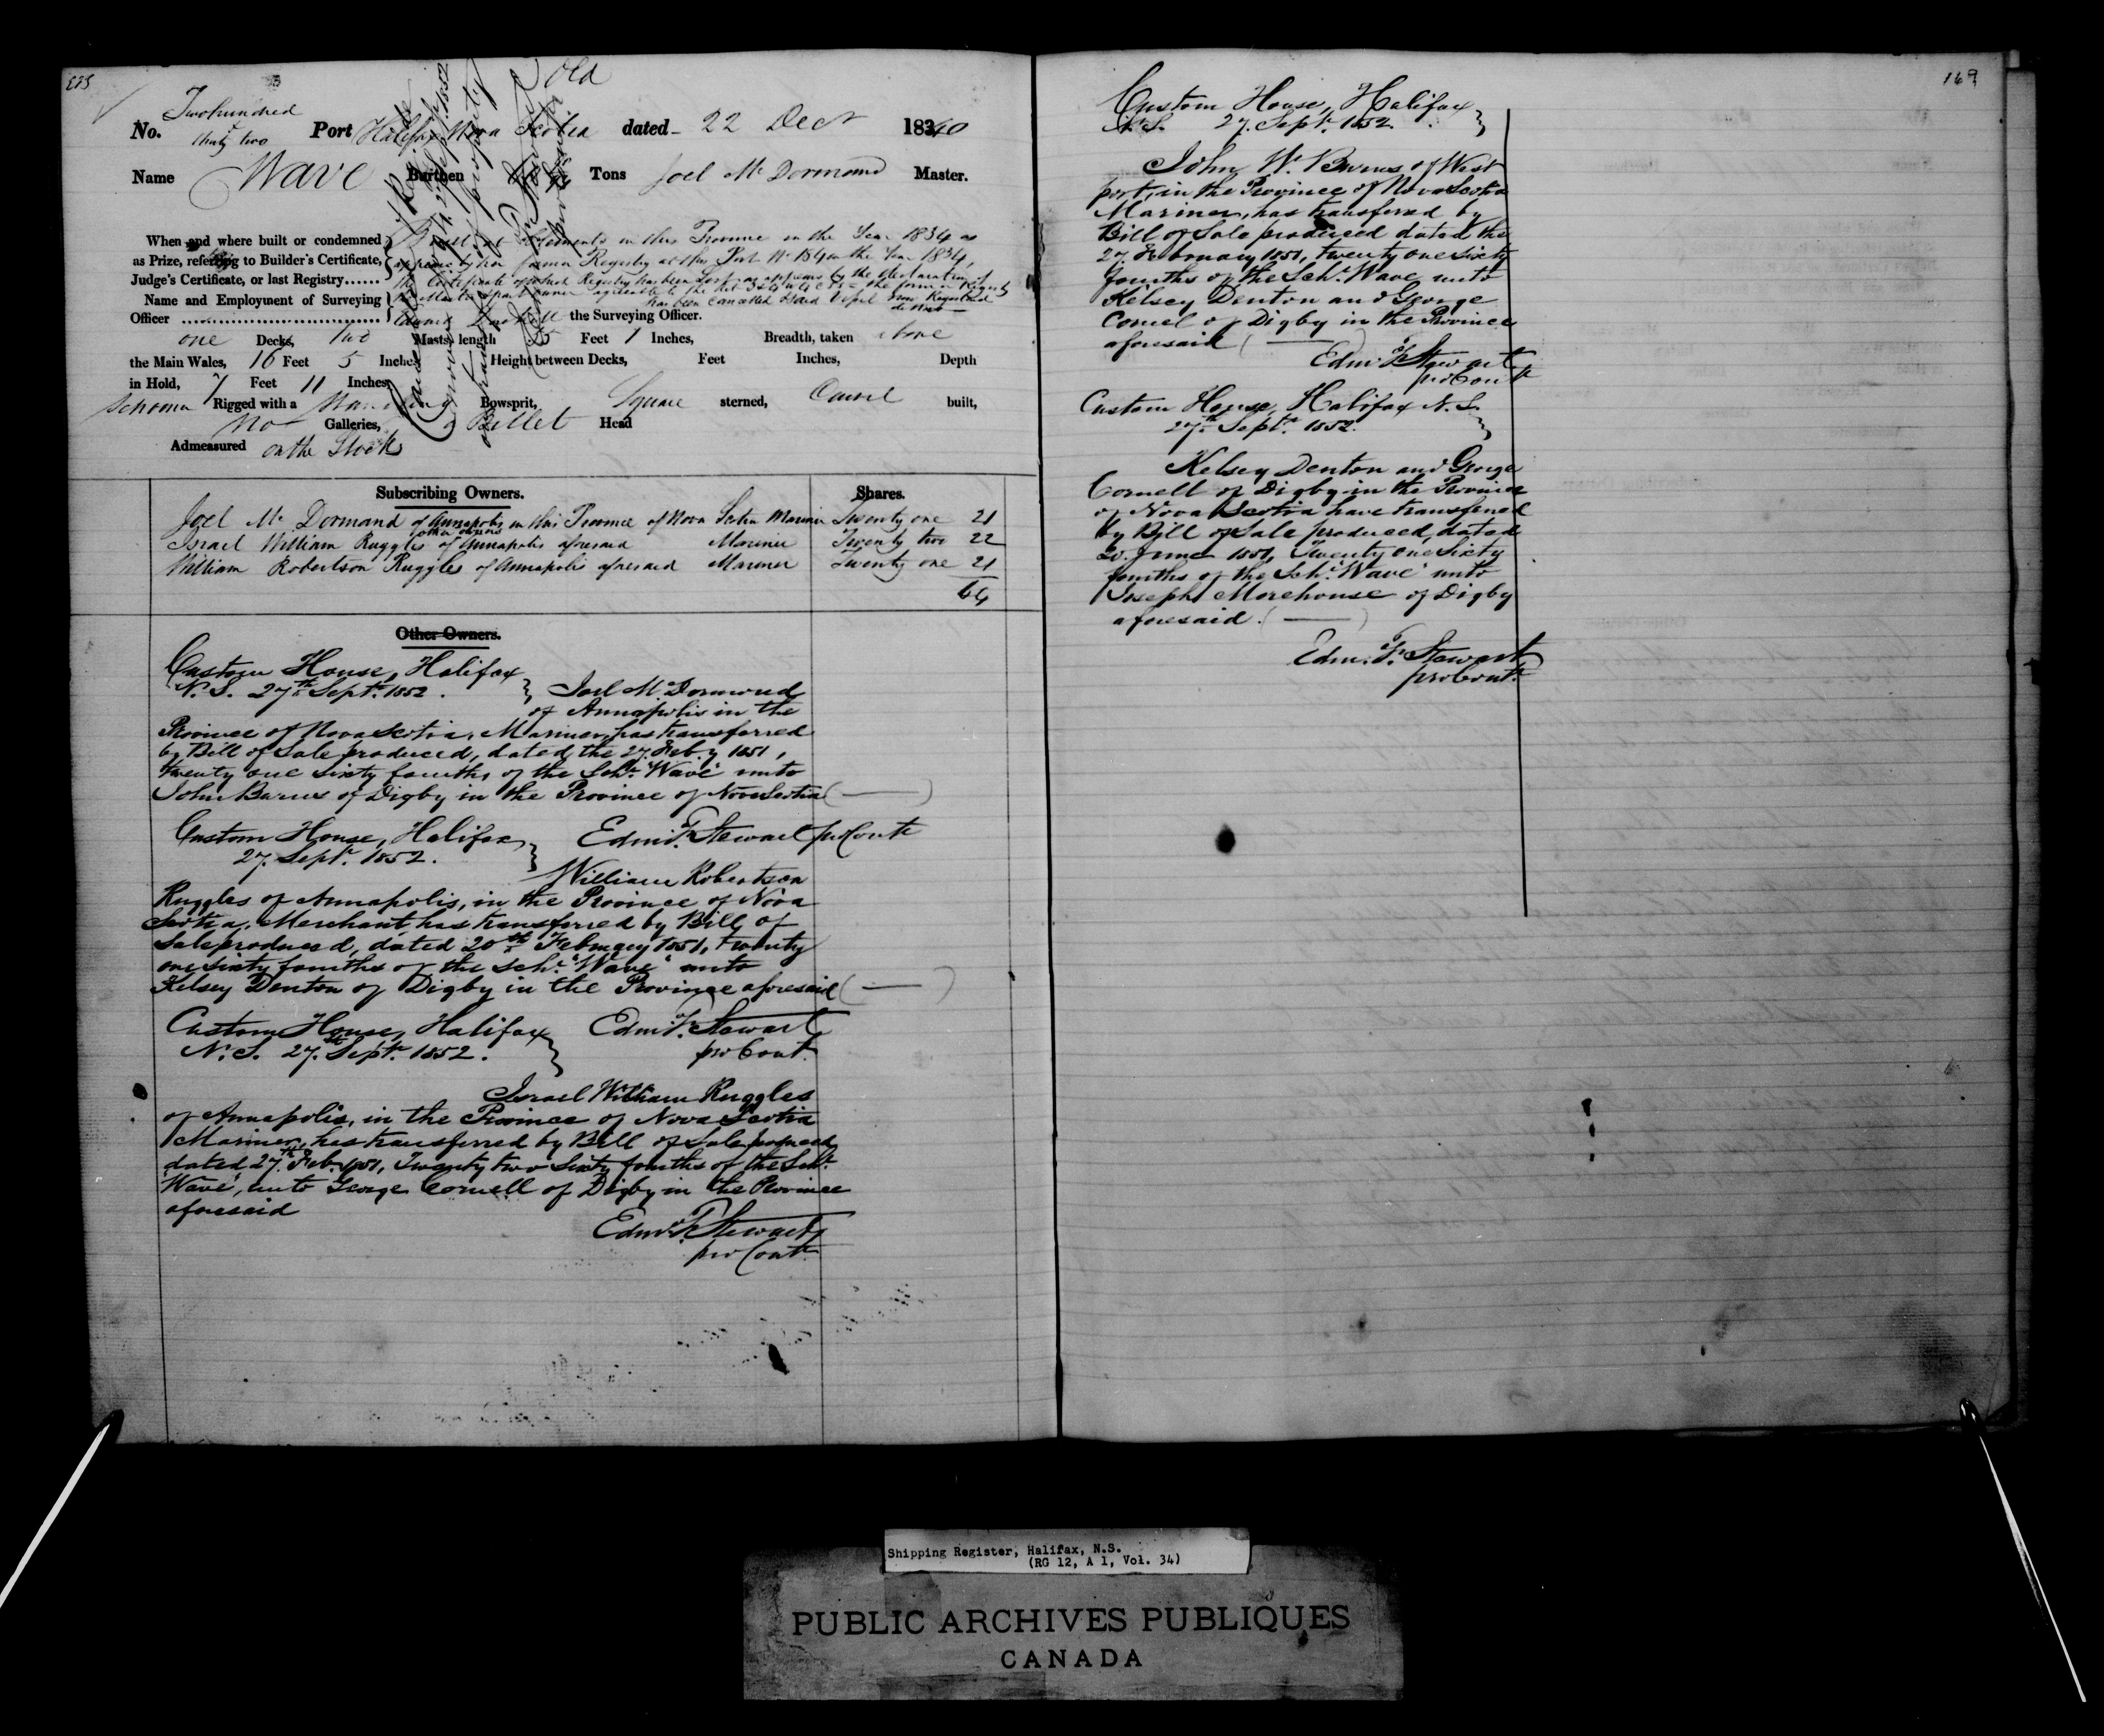 223
No. Two hundred thirty two Port Halifax Nova Scotia dated 22 Decr 1840
Name Wave Burthen Tons Joel Mc Dormand Master.
When and where built or condemned
as Prize, referring to Builder's Certificate,
Judge's Certificate, or last Registry......
in this Province in the Year 1834 as
former Registry at this Port No in the Year 1834,
the Certificate of which Registry has been lost as appears by the declaration of
Name and Employment of Surveying
Officer ................................ the Surveying Officer.
one Decks, two Masts, length Feet 1 Inches, Breadth, taken above
the Main Wales, 16 Feet 5 Inches Height between Decks, Feet Inches, Depth
in Hold, 7 Feet 11 Inches
Schooner Rigged with a Standing Bowsprit, Square sterned, Carvel built,
No Galleries, Billet Head
Admeasured on the Stocks
Subscribing Owners. Shares.
Joel Mc Dormand of Annapolis in this Province of Nova Scotia Mariner Twenty one 21
Israel William Ruggles of Annapolis aforesaid Mariner Twenty two 22
William Robertson Ruggles of Annapolis aforesaid Mariner Twenty one 21
64
Other Owners.
Custom House, Halifax
N.S. 27th Septr. 1852.
Joel Mc Dormond
of Annapolis in the
Province of Nova Scotia, Mariner, has transferred
by Bill of Sale produced, dated the 27 Feby 1851,
twenty one sixty fourths of the Schr. "Wave" unto
John Burns of Digby in the Province of Nova Scotia
Edmd. F. Stewart pro Contr
Custom House, Halifax
27. Septr. 1852.
William Robertson
Ruggles of Annapolis, in the Province of Nova
Scotia, Merchant has transferred by Bill of
Sale produced, dated 20th February 1851, twenty
one sixty fourths of the Schr. "Wave" unto
Kelsey Denton of Digby in the Province aforesaid
Edmd F. Stewart
pro Contr
Custom House, Halifax
N.S. 27th Septr. 1852.
Israel William Ruggles
of Annapolis, in the Province of Nova Scotia
Mariner, has transferred by Bill of Sale produced
dated 27th Feb. 1851, Twenty two Sixty fourths of the Schr.
"Wave", unto George Cornell of Digby in the Province
aforesaid
Edmd F. Stewart
pro Contr
169
Custom House, Halifax
N.S. 27. Septr. 1852.
John W. Burns of West
port, in the Province of Nova Scotia
Mariner, has transferred by
Bill of Sale produced dated the
27. February 1851, twenty one sixty
fourths of the Schr. Wave unto
Kelsey Denton and George
Cornel of Digby in the Province
aforesaid
Edmd F. Stewart
pro Contr
Custom House, Halifax N.S.
27th Septr. 1852.
Kelsey Denton and George
Cornell of Digby in the Province
of Nova Scotia have transferred
by Bill of Sale produced, dated
20. June 1851, Twenty one Sixty
fourths of the Schr. "Wave" unto
Joseph Morehouse of Digby
aforesaid.
Edmd. F. Stewart
pro Contr.
Shipping Register, Halifax, N.S.
(RG 12, A 1, Vol. 34)
PUBLIC ARCHIVES PUBLIQUES
CANADA